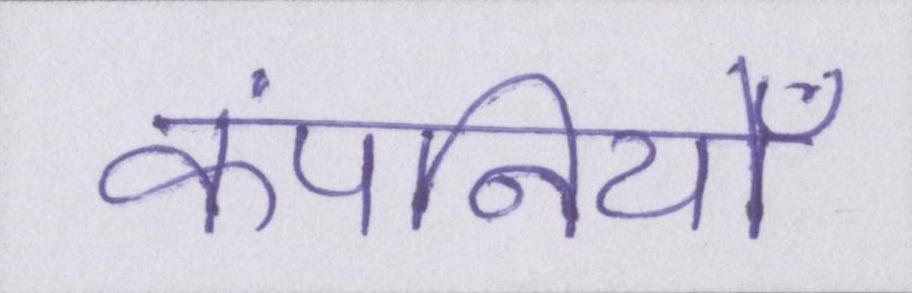 कंपनियोँ